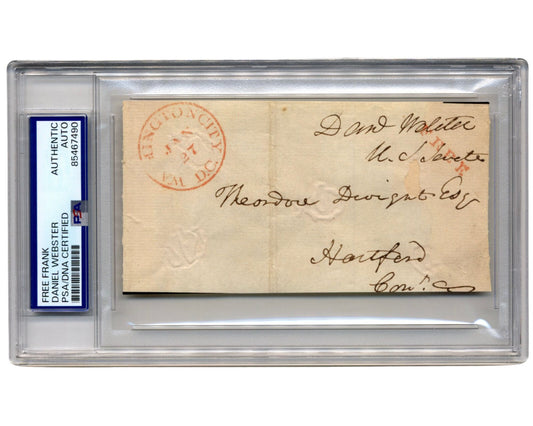 FREE FRANK
DANIEL WEBSTER
PSA/DNA CERTIFIED
AUTHENTIC
AUTO
85467490
PSA
INGTON CITY
JAN
27
D.C.
Danl Webster
U. S. Senate
FREE
Theodore Dwight Esq
Hartford
Con.